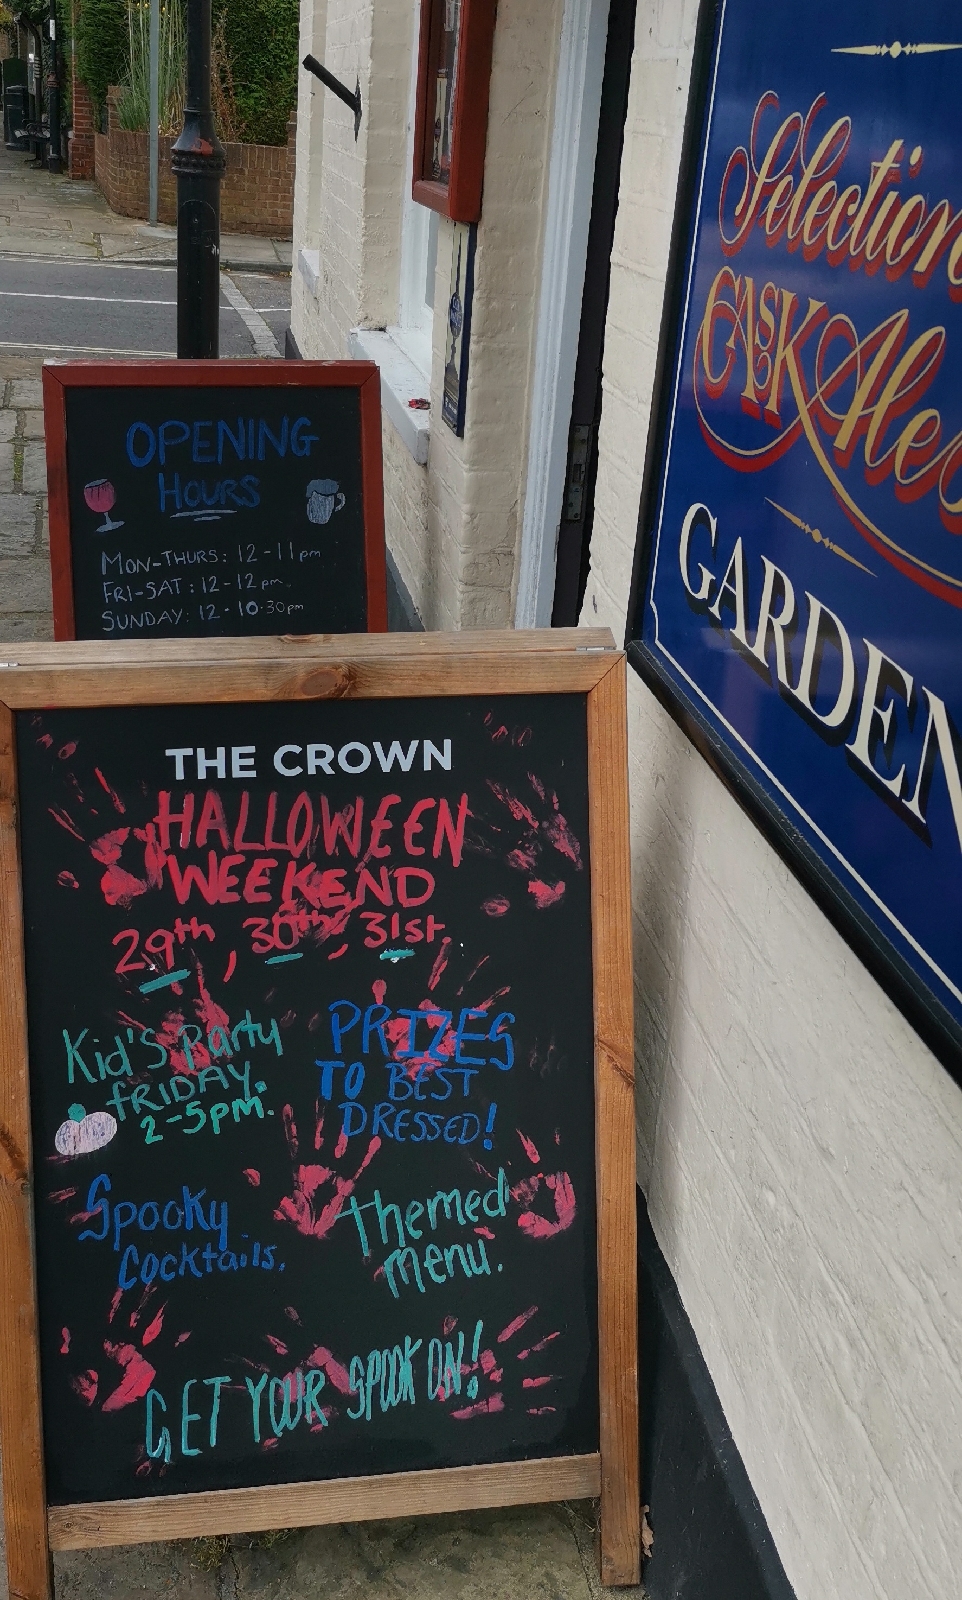 Selection
CASK Ales
GARDEN
OPENING
HOURS
MON-THURS: 12-11pm
FRI-SAT: 12-12pm
SUNDAY: 12-10.30pm
THE CROWN
HALLOWEEN
WEEKEND
29th, 30th, 31st
Kid's Party
FRIDAY.
2-5PM.
PRIZES
TO BEST
DRESSED!
Spooky
Cocktails.
themed
menu.
GET YOUR SPOOK ON!